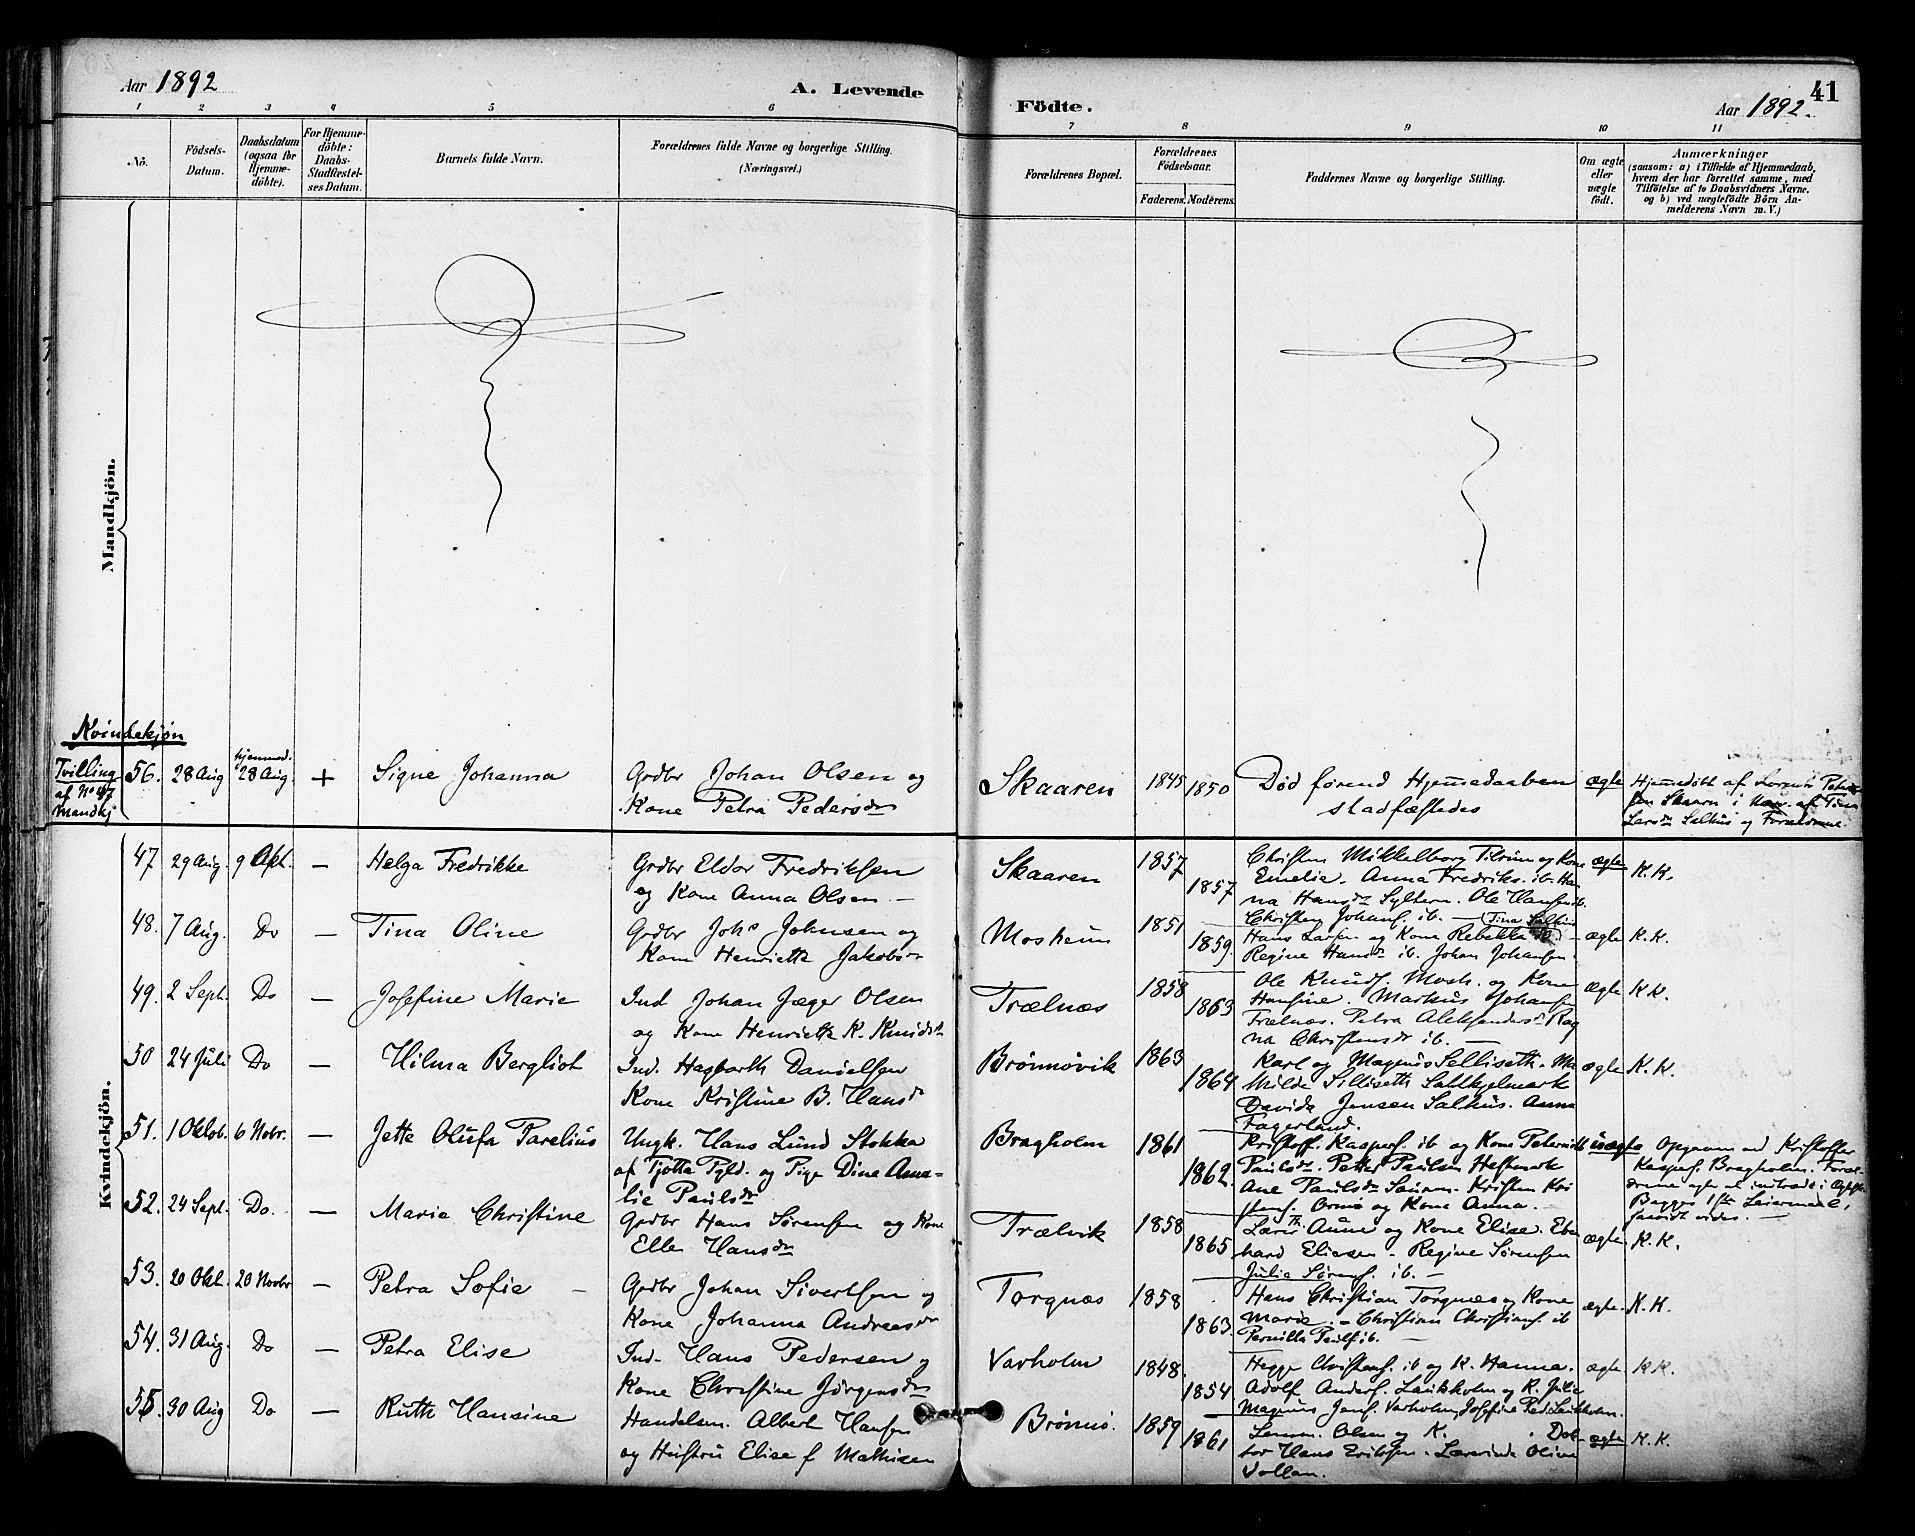 Aar 1892
A. Levende
Födte.
Aar 1892.
41
1 2 3 4 5 6 7 8 9 10 11
No.
Födsels-
Datum.
Daabsdatum
(ogsaa for
Hjemme-
döbte).
For Hjemme-
döbte:
Daabs-
Stadfæstel-
ses Datum.
Barnets fulde Navn.
Forældrenes fulde Navne og borgerlige Stilling.
(Næringsvei.)
Forældrenes Bopæl.
Forældrenes
Födselsaar.
Faderens. Moderens.
Faddernes Navne og borgerlige Stilling.
Om ægte
eller
uægte
födt.
Anmærkninger
(saasom: a) i Tilfælde af Hjemmedaab,
hvem der har forrettet samme, med
Tilföielse af to Daabsvidners Navne.
og b) ved uægtefödte Börn An-
melderens Navn m. V.)
Mandkjön.
Kvindekjøn
Tvilling
af No 47
Mandkj
56. 28 Aug hjemmed. 28 Aug. + Signe Johanna
Grdbr Johan Olsen og
Kone Petra Pedersdr
Skaaren 1845 1850
Død førend Hjemmedaaben
stadfæstedes
ægte
Hjemmedøbt af
Skaarn i af Tina
Larsdr Salhus og Forældrene
Kvindekjön.
47. 29 Aug. 9 Okt. — Helga Fredrikke
Grdbr Eldor Fredriksen
og Kone Anna Olsen. —
Skaaren 1857 1857
Christen Mikkelborg Tilrum og Kone
Emelie. Anna Fredriks. ib. Han-
na Hansdr Syltern. Ole Hansen ib.
Christen Johans. ib. —
ægte K. K.
48. 7 Aug. Do — Tina Oline
Grdbr Johs Johnsen og
Kone Henriette Jakobsdr
Mosheim 1851 1859.
(Tina
Hans Larsen og Kone Rebekka
Regine Hansdr ib. Johan Johansen.
ægte K. K.
49. 2 Sept. Do — Josefine Marie
Ind Johan Jæger Olsen
og Kone Henriette K. Knudsdr
Trælnæs 1858 1863
Ole Knuds. Mosh. og Kone
Hansine. Markus Johansen
Trælnæs. Petra Aleksandersdr Rag
na Christensdr ib. —
ægte K. K.
50 24 Juli Do — Hilma Bergliot
Ind. Hagbarth Danielsen
Kone Kristine B. Hansdr
Brönnövik 1863 1864
Karl og Magnus Sellisseth. Ma
Davida Jensen Salhus. Anna
Fagerland.
ægte K. K.
51. 1 Oktob. 6 Nobr. — Jette Olufa Parelius
Ungk. Hans Lund Stokka
af Tjøtta Pgld. og Pige Dine Ama-
lie Paulsdr
Bragholm 1861 1862.
Kristoff. Kaspers. ib og Kone
Paulsdr. Petter Paulsen
Ane Paulsdr Kristen Kri
stens. og Kone Anna. —
uægte
Opgivm. ved Kristoffer
Kaspers. Bragholm. Foræl-
drene agte at indtræde i
Begges 1ste Leiermaal,
saavidt vides. —
52. 24 Sept. Do. — Marie Christine
Grdbr Hans Sørensen og Kone
Ellen Hansdr
Trælvik 1858 1865
Aune og Kone Elise. Eben
hard Eliesen. Regine Sørensen
Julie Sørens. ib. —
ægte K. K.
53. 20 Okt. 20 Novbr — Petra Sofie —
Grdbr Johan Sivertsen og
Kone Johanna Andreasdr
Torgnæs 1858 1863.
Hans Christian Torgnæs og Kone
Marie. — Christian Christians. ib
Pernille ib. —
ægte. K. K.
54. 31 Aug. Do — Petra Elise
Ind. Hans Pedersen og
Kone Christine Jörgensdr
Varholm 1848. 1854
Hegge Christens. ib og K. Hanna.
Adolf Anders. Laukholm og K. Julie
Magnus Jens. Varholm, Josefine
ægte K. K.
55. 30 Aug Do — Ruth Hansine
Handelsm. Albert Hansen
og Hustru Elise f Mathisen
Brönnö. 1859 1861
Olsen og K. Dok-
tor Hans Eriksen. Lærerinde Oline
Vollan.
ægte K. K.